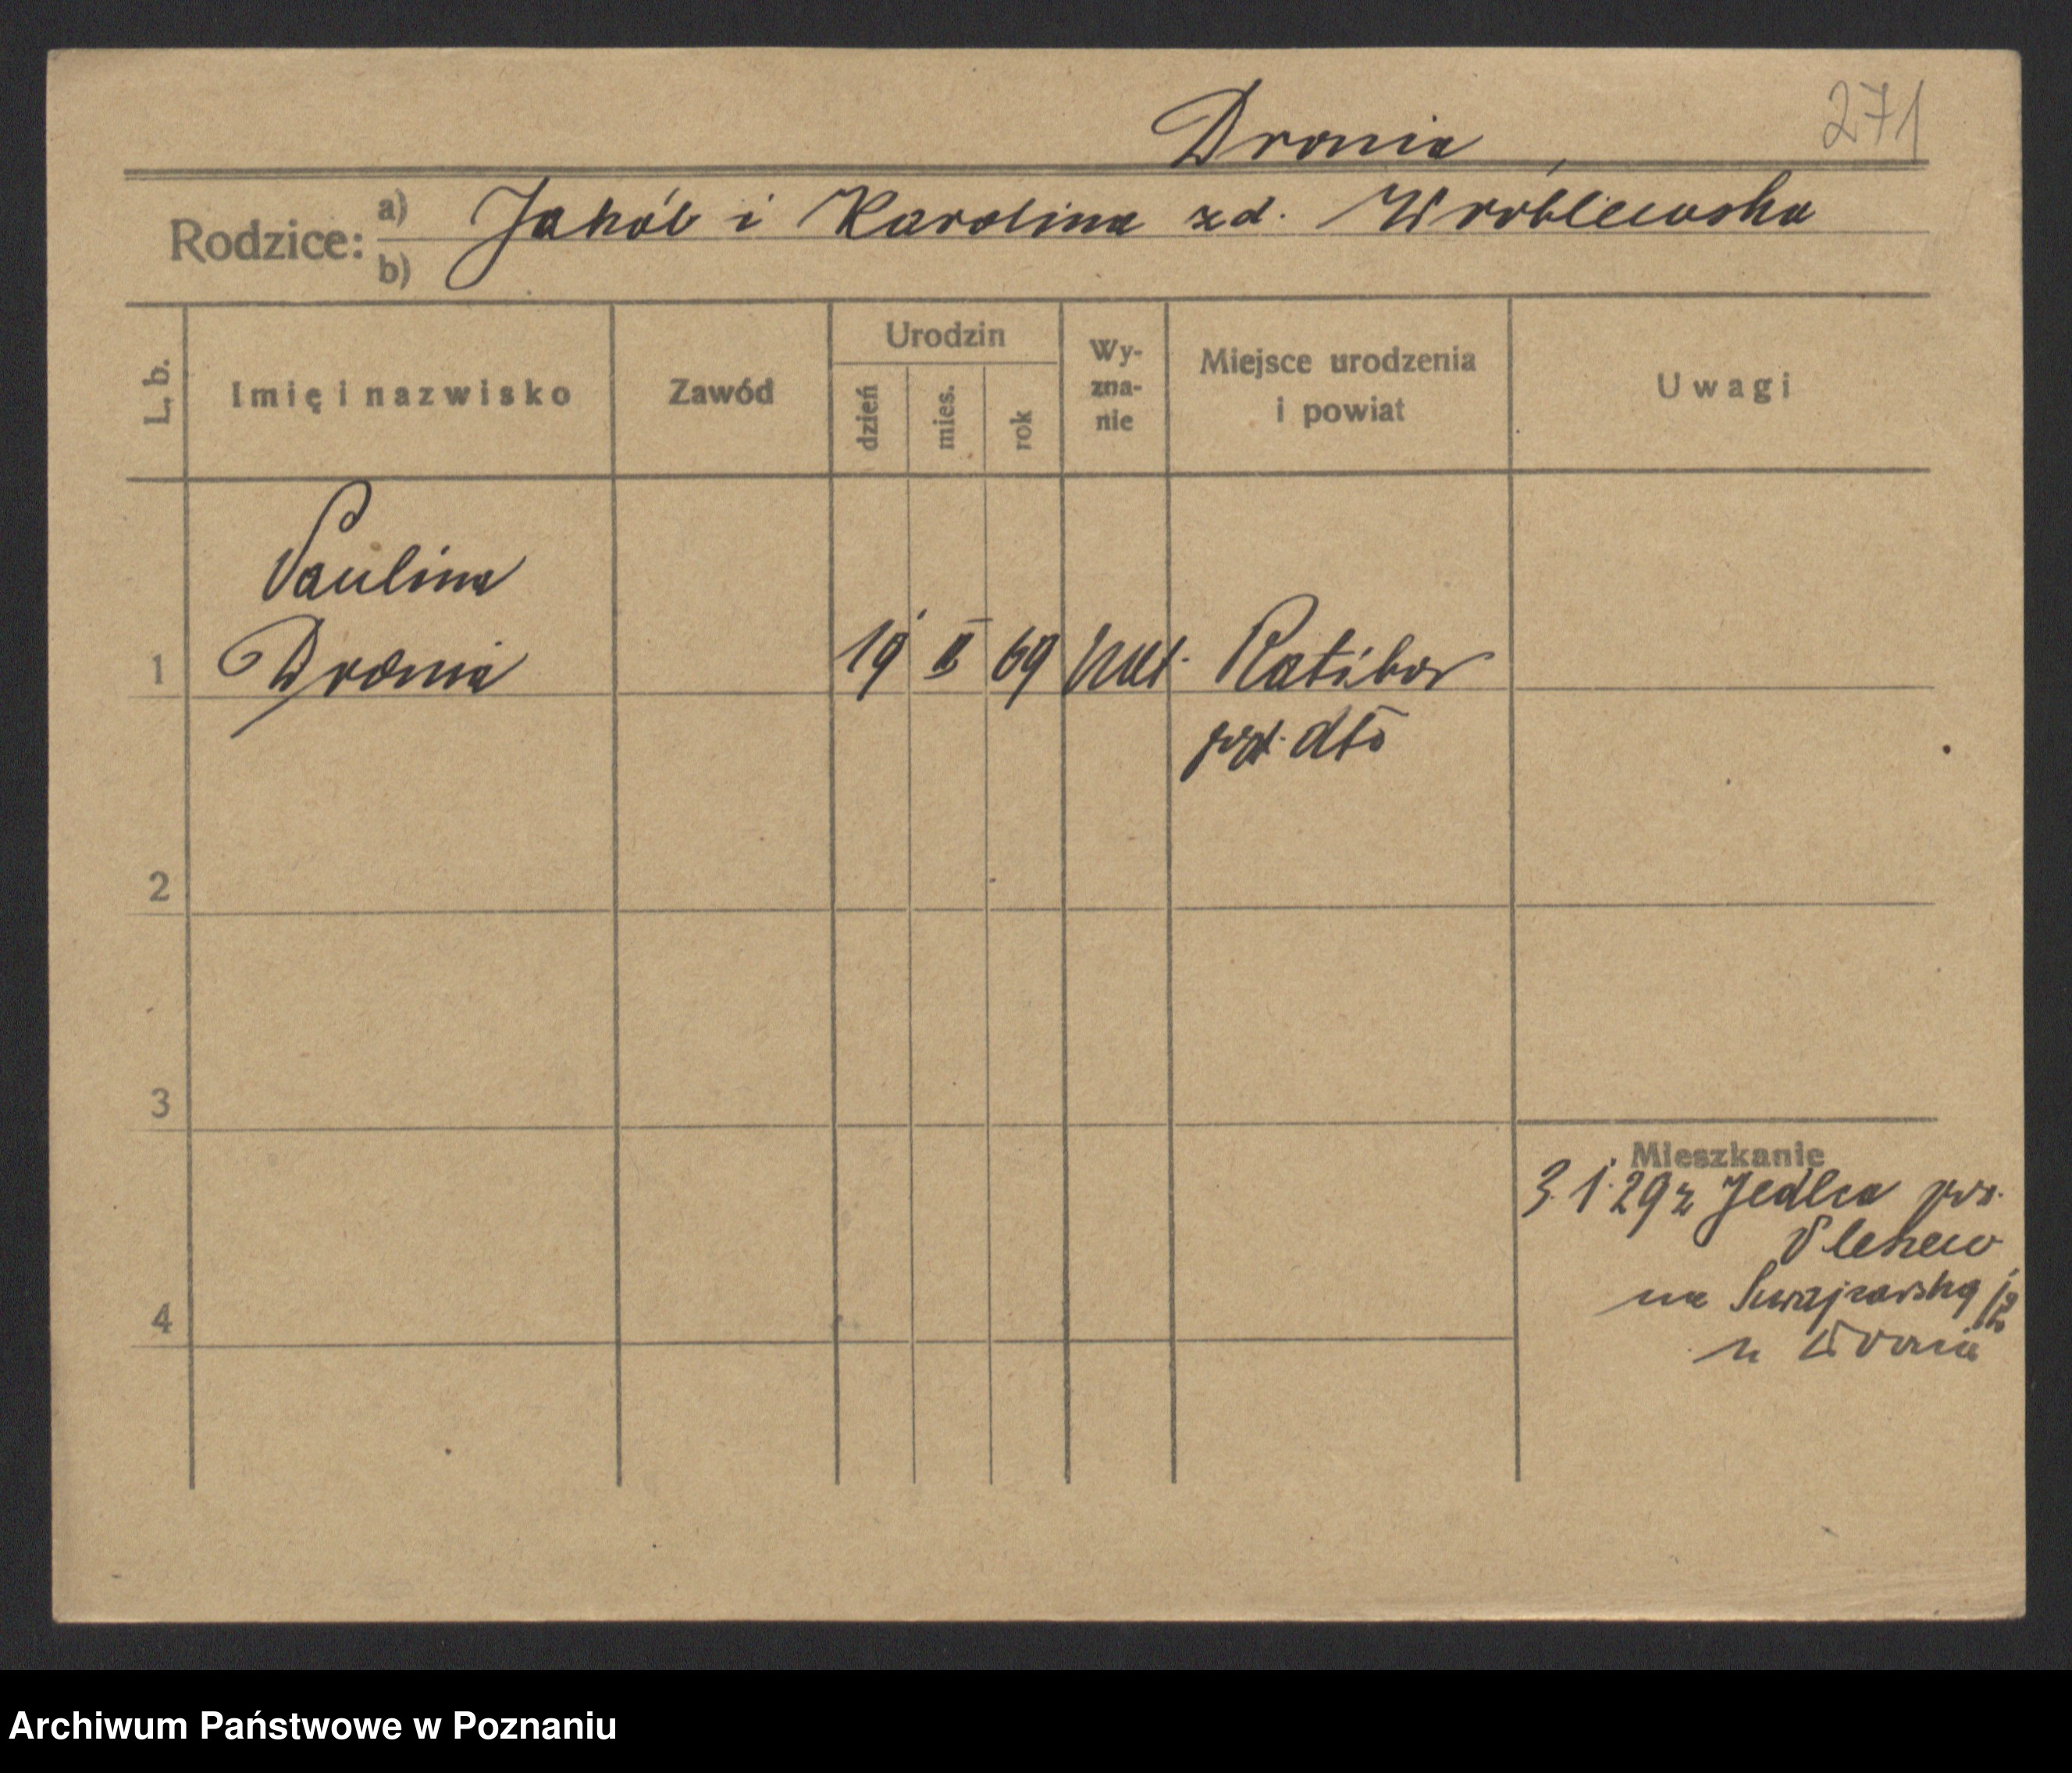 Dronia
271
Rodzice: a) Jakób i Karolina zd. Wróblewska
b)
L. b. Imię i nazwisko Zawód Urodzin dzień mies. rok Wy-zna-nie Miejsce urodzenia i powiat Uwagi
Paulina
1 Dronia 19 II 69 kat. Ratibor
pow. dto
2
3
Mieszkanie
3.1.29 z Jedlca pow.
Pleszew
4 na Szwajcarską
u Dronia
Archiwum Państwowe w Poznaniu